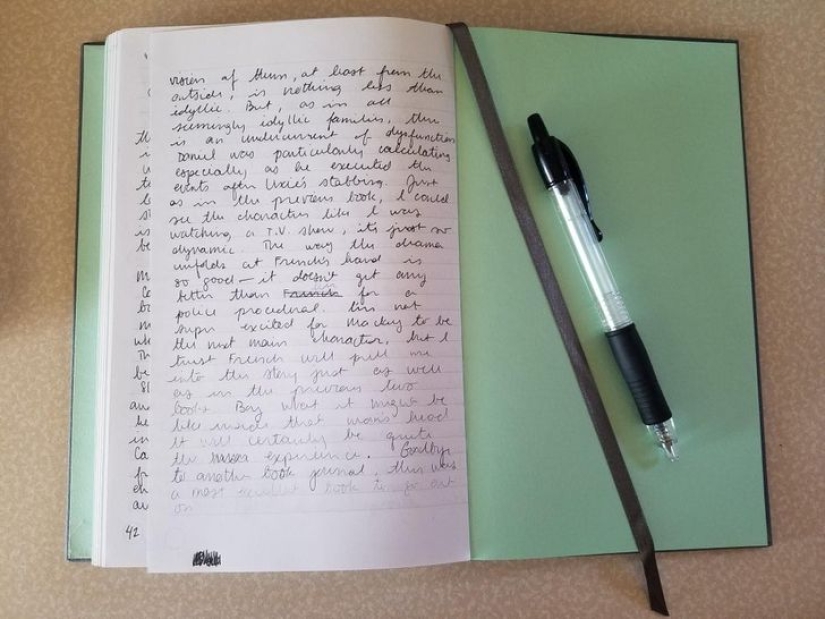 vision of them, at least from the
outside, is nothing less than
idyllic. But, as in all
seemingly idyllic families, there
is an undercurrent of dysfunction
Daniel was particularly calculating
especially as he executed the
events after Lexie's stabbing. Just
as in the previous book, I could
see the characters like I was
watching a T.V. show, it's just so
dynamic. The way the drama
unfolds at French's hand is
so good — it doesn't get any
better than French for a
police procedural. I'm not
super excited for Mackey to be
the next main character, but I
trust French will pull me
into the story just as well
as in the previous two
books. Boy what it might be
like inside that man's head
It will certainly be quite
the experience. Goodbye
to another book journal, this was
a most excellent book to go out
on
th
an
in
Ca
42